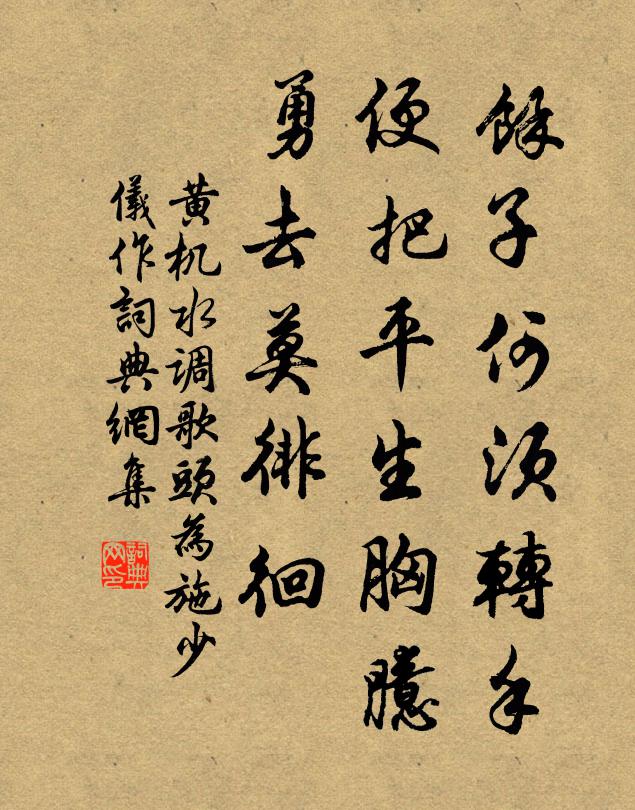 餘子何須轉手
便把平生胸臆
勇去莫徘徊
黄机水调歌頭為施少
儀作詞典網集
詞典网印